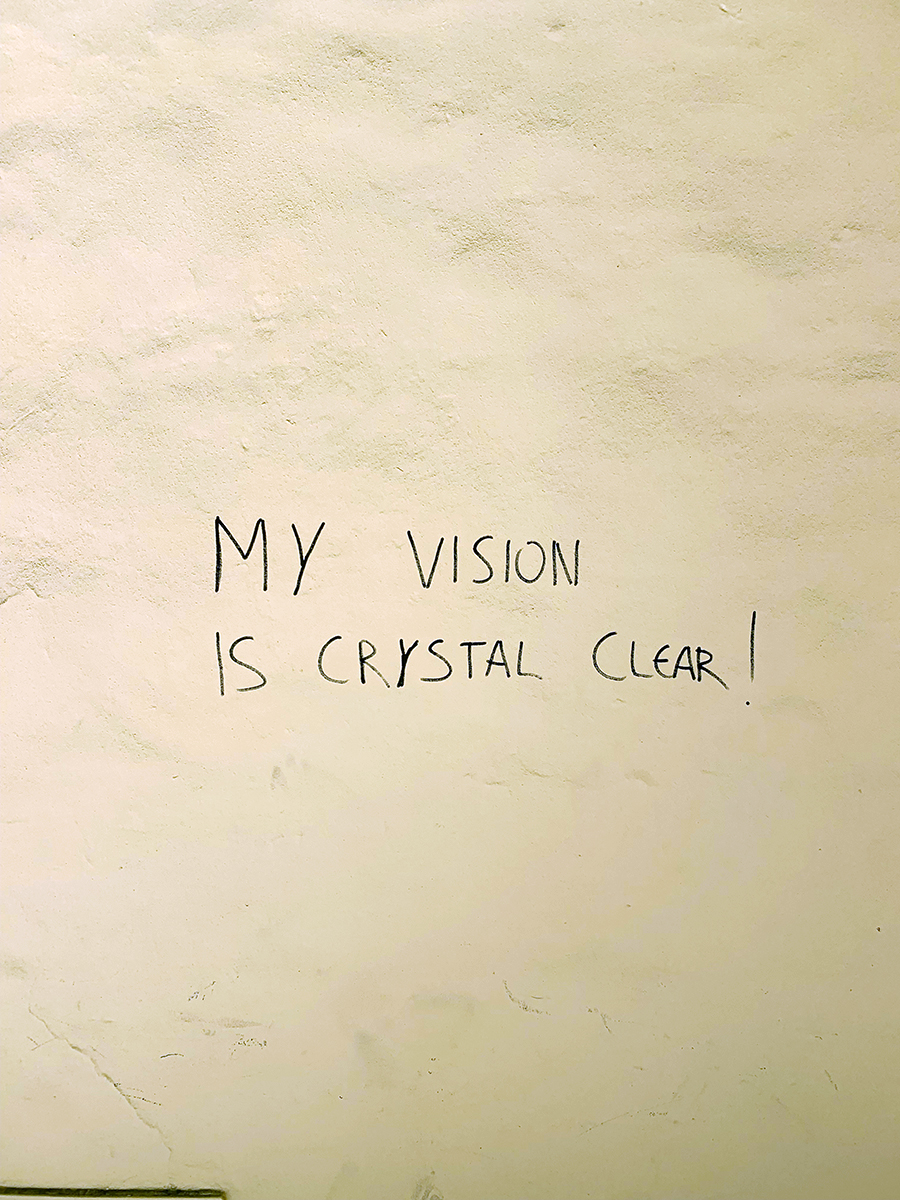 MY VISION
IS CRYSTAL CLEAR!